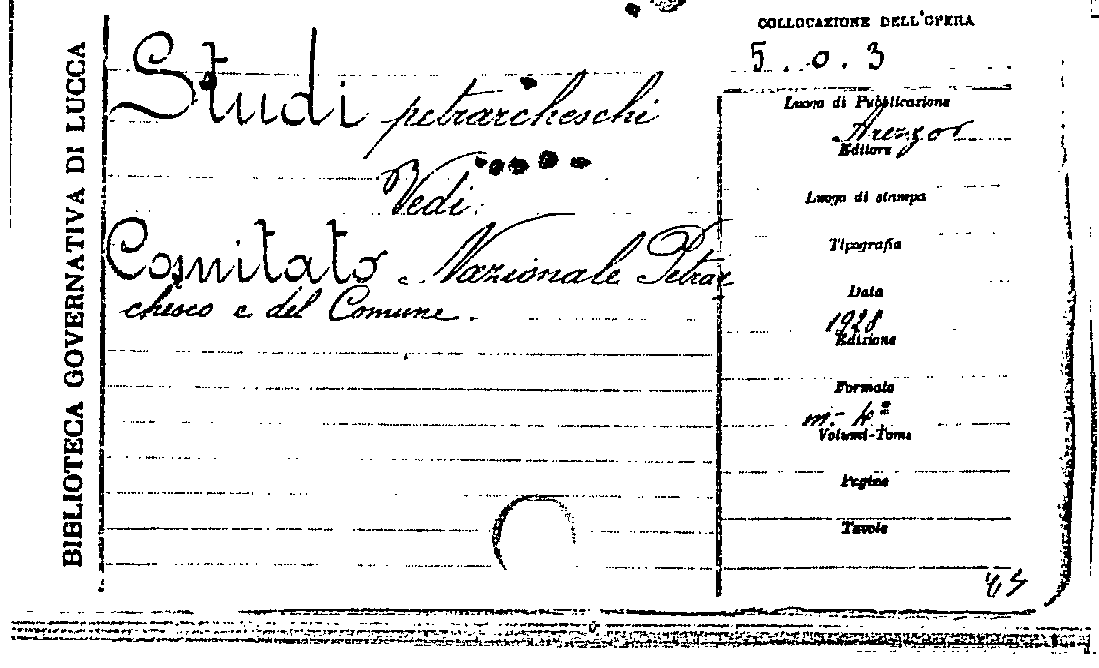 BIBLIOTECA GOVERNATIVA DI LUCCA
Studi petrarcheschi
Vedi:
Comitato Nazionale Petrar
chesco e del Comune.
COLLOCAZIONE DELL'OPERA
5. . 0. 3
Luogo di Pubblicazione
Arezzo
Editore
Luogo di stampa
Tipografia
Data
1928
Edizione
Formato
m- 4º
Volumi-Tomi
Pagine
Tavole